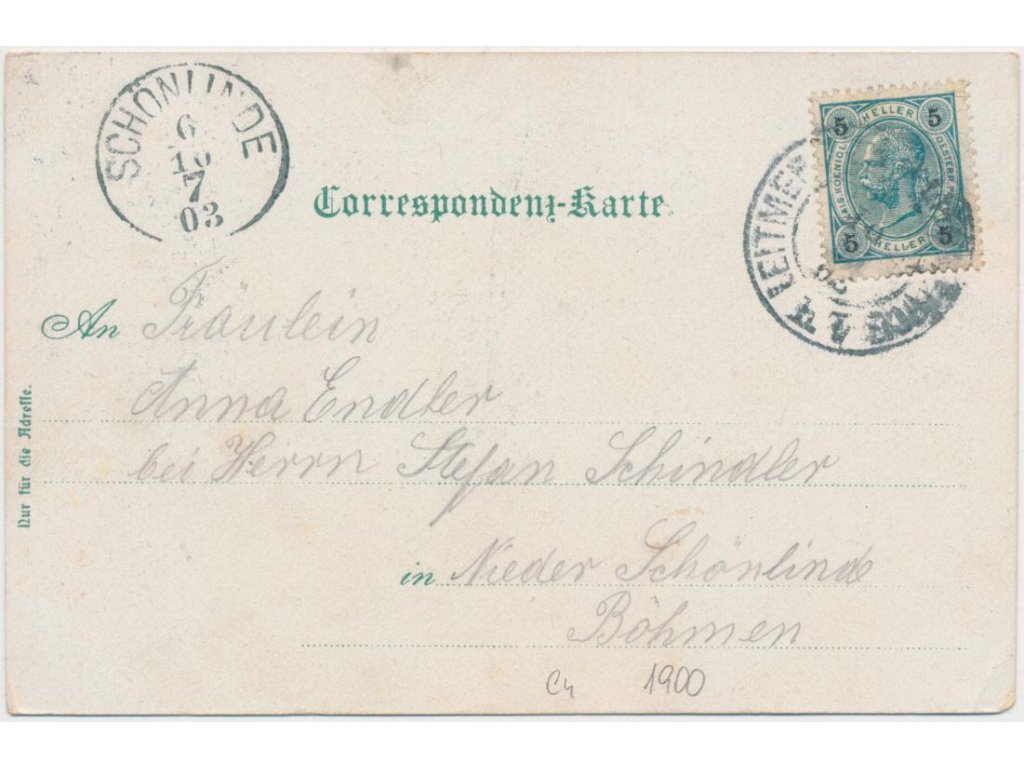 SCHÖNLINDE
6
10
7
03
Correspondenz-Karte
5 HELLER 5
KAIS. KOENIGL. OESTERR.
5 HELLER 5
LEITME
An Fräulein
Anna Endler
bei Herrn Stefan Schindler
in Nieder Schönlinde
Böhmen
Nur für die Adresse.
1900